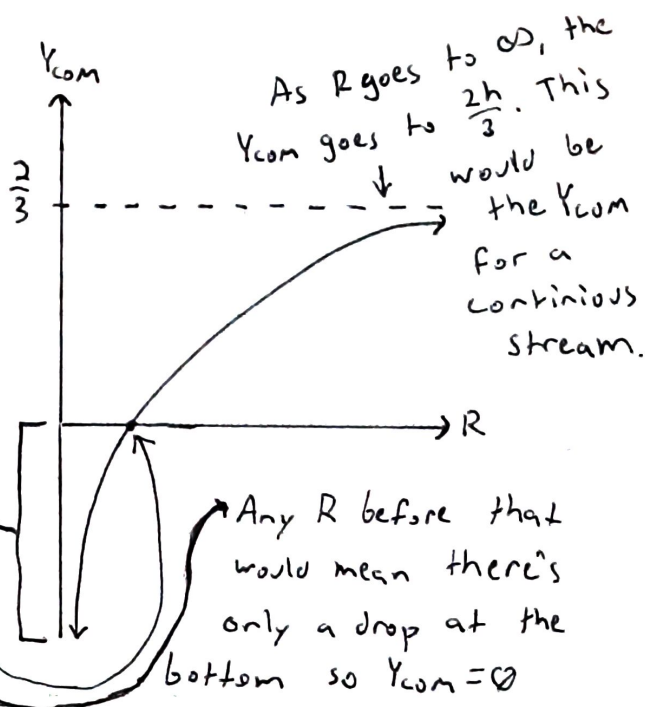 Ycom
As R goes to ∞, the
Ycom goes to 2h/3. This
would be
the Ycom
for a
continious
stream.
2/3
R
Any R before that
would mean there's
only a drop at the
bottom so Ycom = ∅